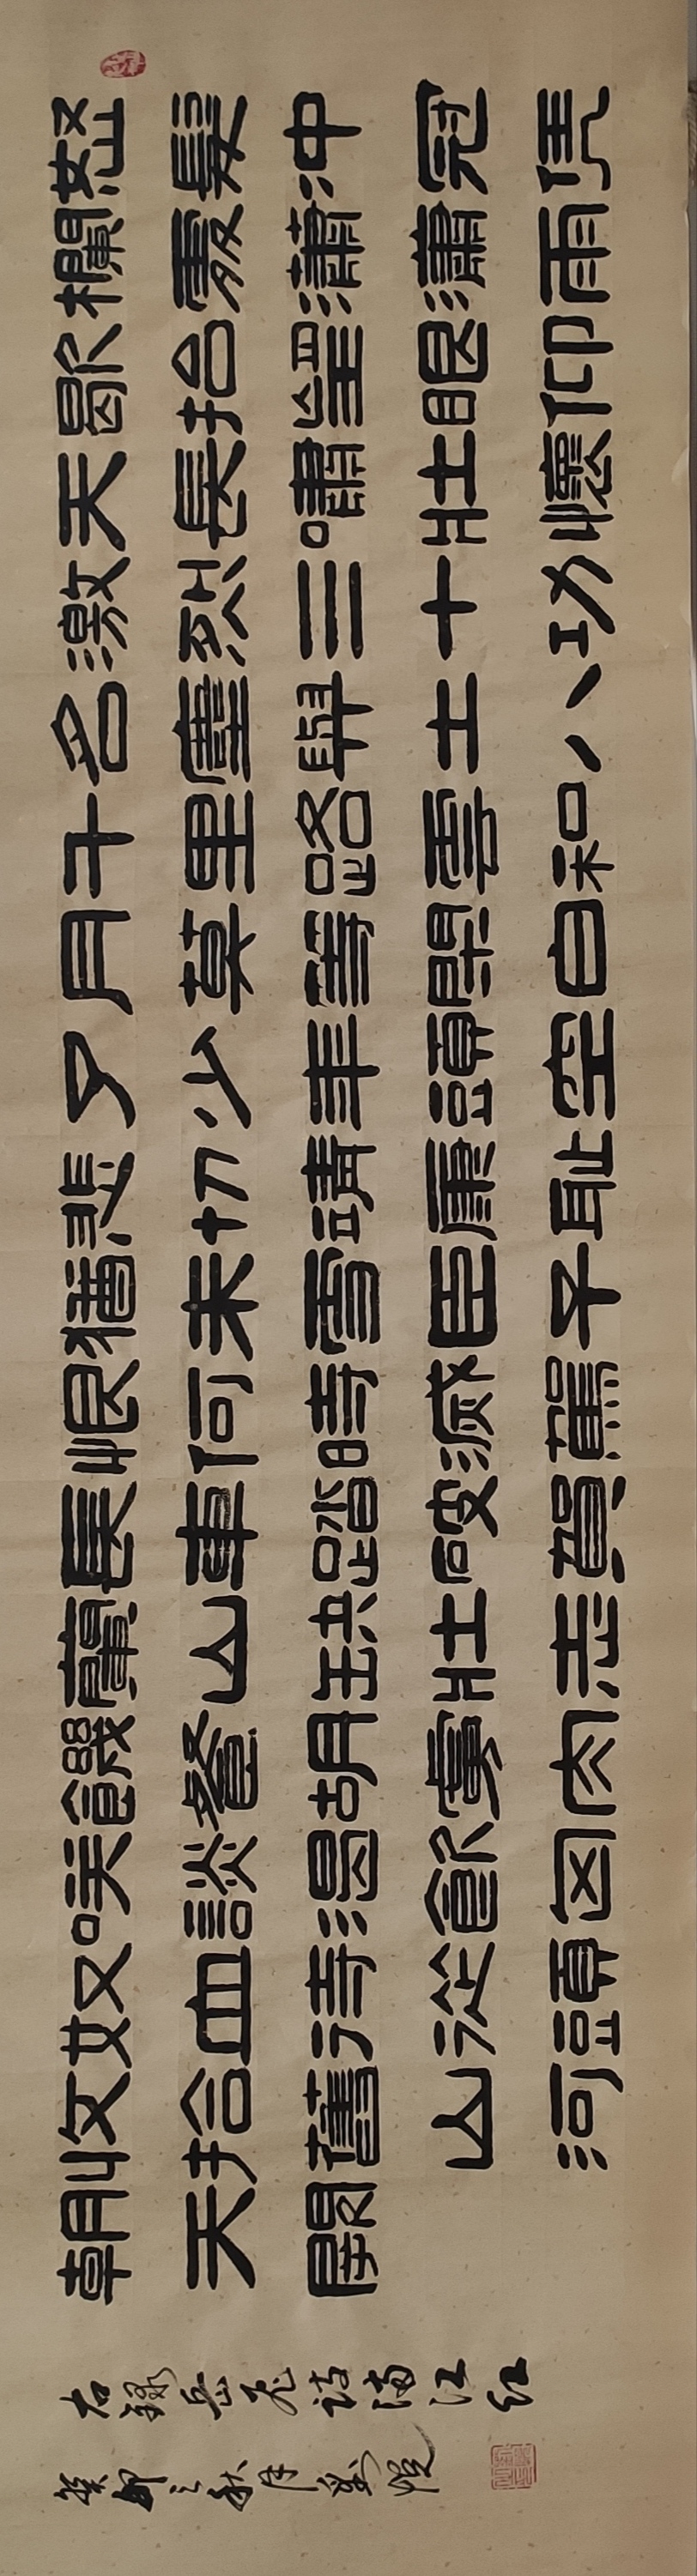 怒髮沖冠凭
欄處瀟瀟雨
歇抬望眼仰
天長嘯壯懷
激烈三十功
名塵與土八
千里路雲和
月莫等閒白
了少年頭空
悲切靖康恥
猶未雪臣子
恨何時滅駕
長車踏破賀
蘭山缺壯志
饑餐胡虜肉
笑談渴飲匈
奴血待從頭
收拾舊山河
朝天闕
右錄岳飛詞滿江紅
癸卯之秋月